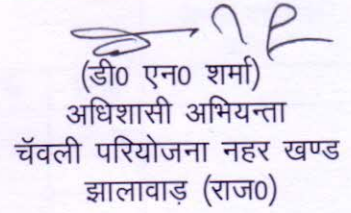 (डी0 एन0 शर्मा)
अधिशासी अभियन्ता
चॅवली परियोजना नहर खण्ड
झालावाड़ (राज0)